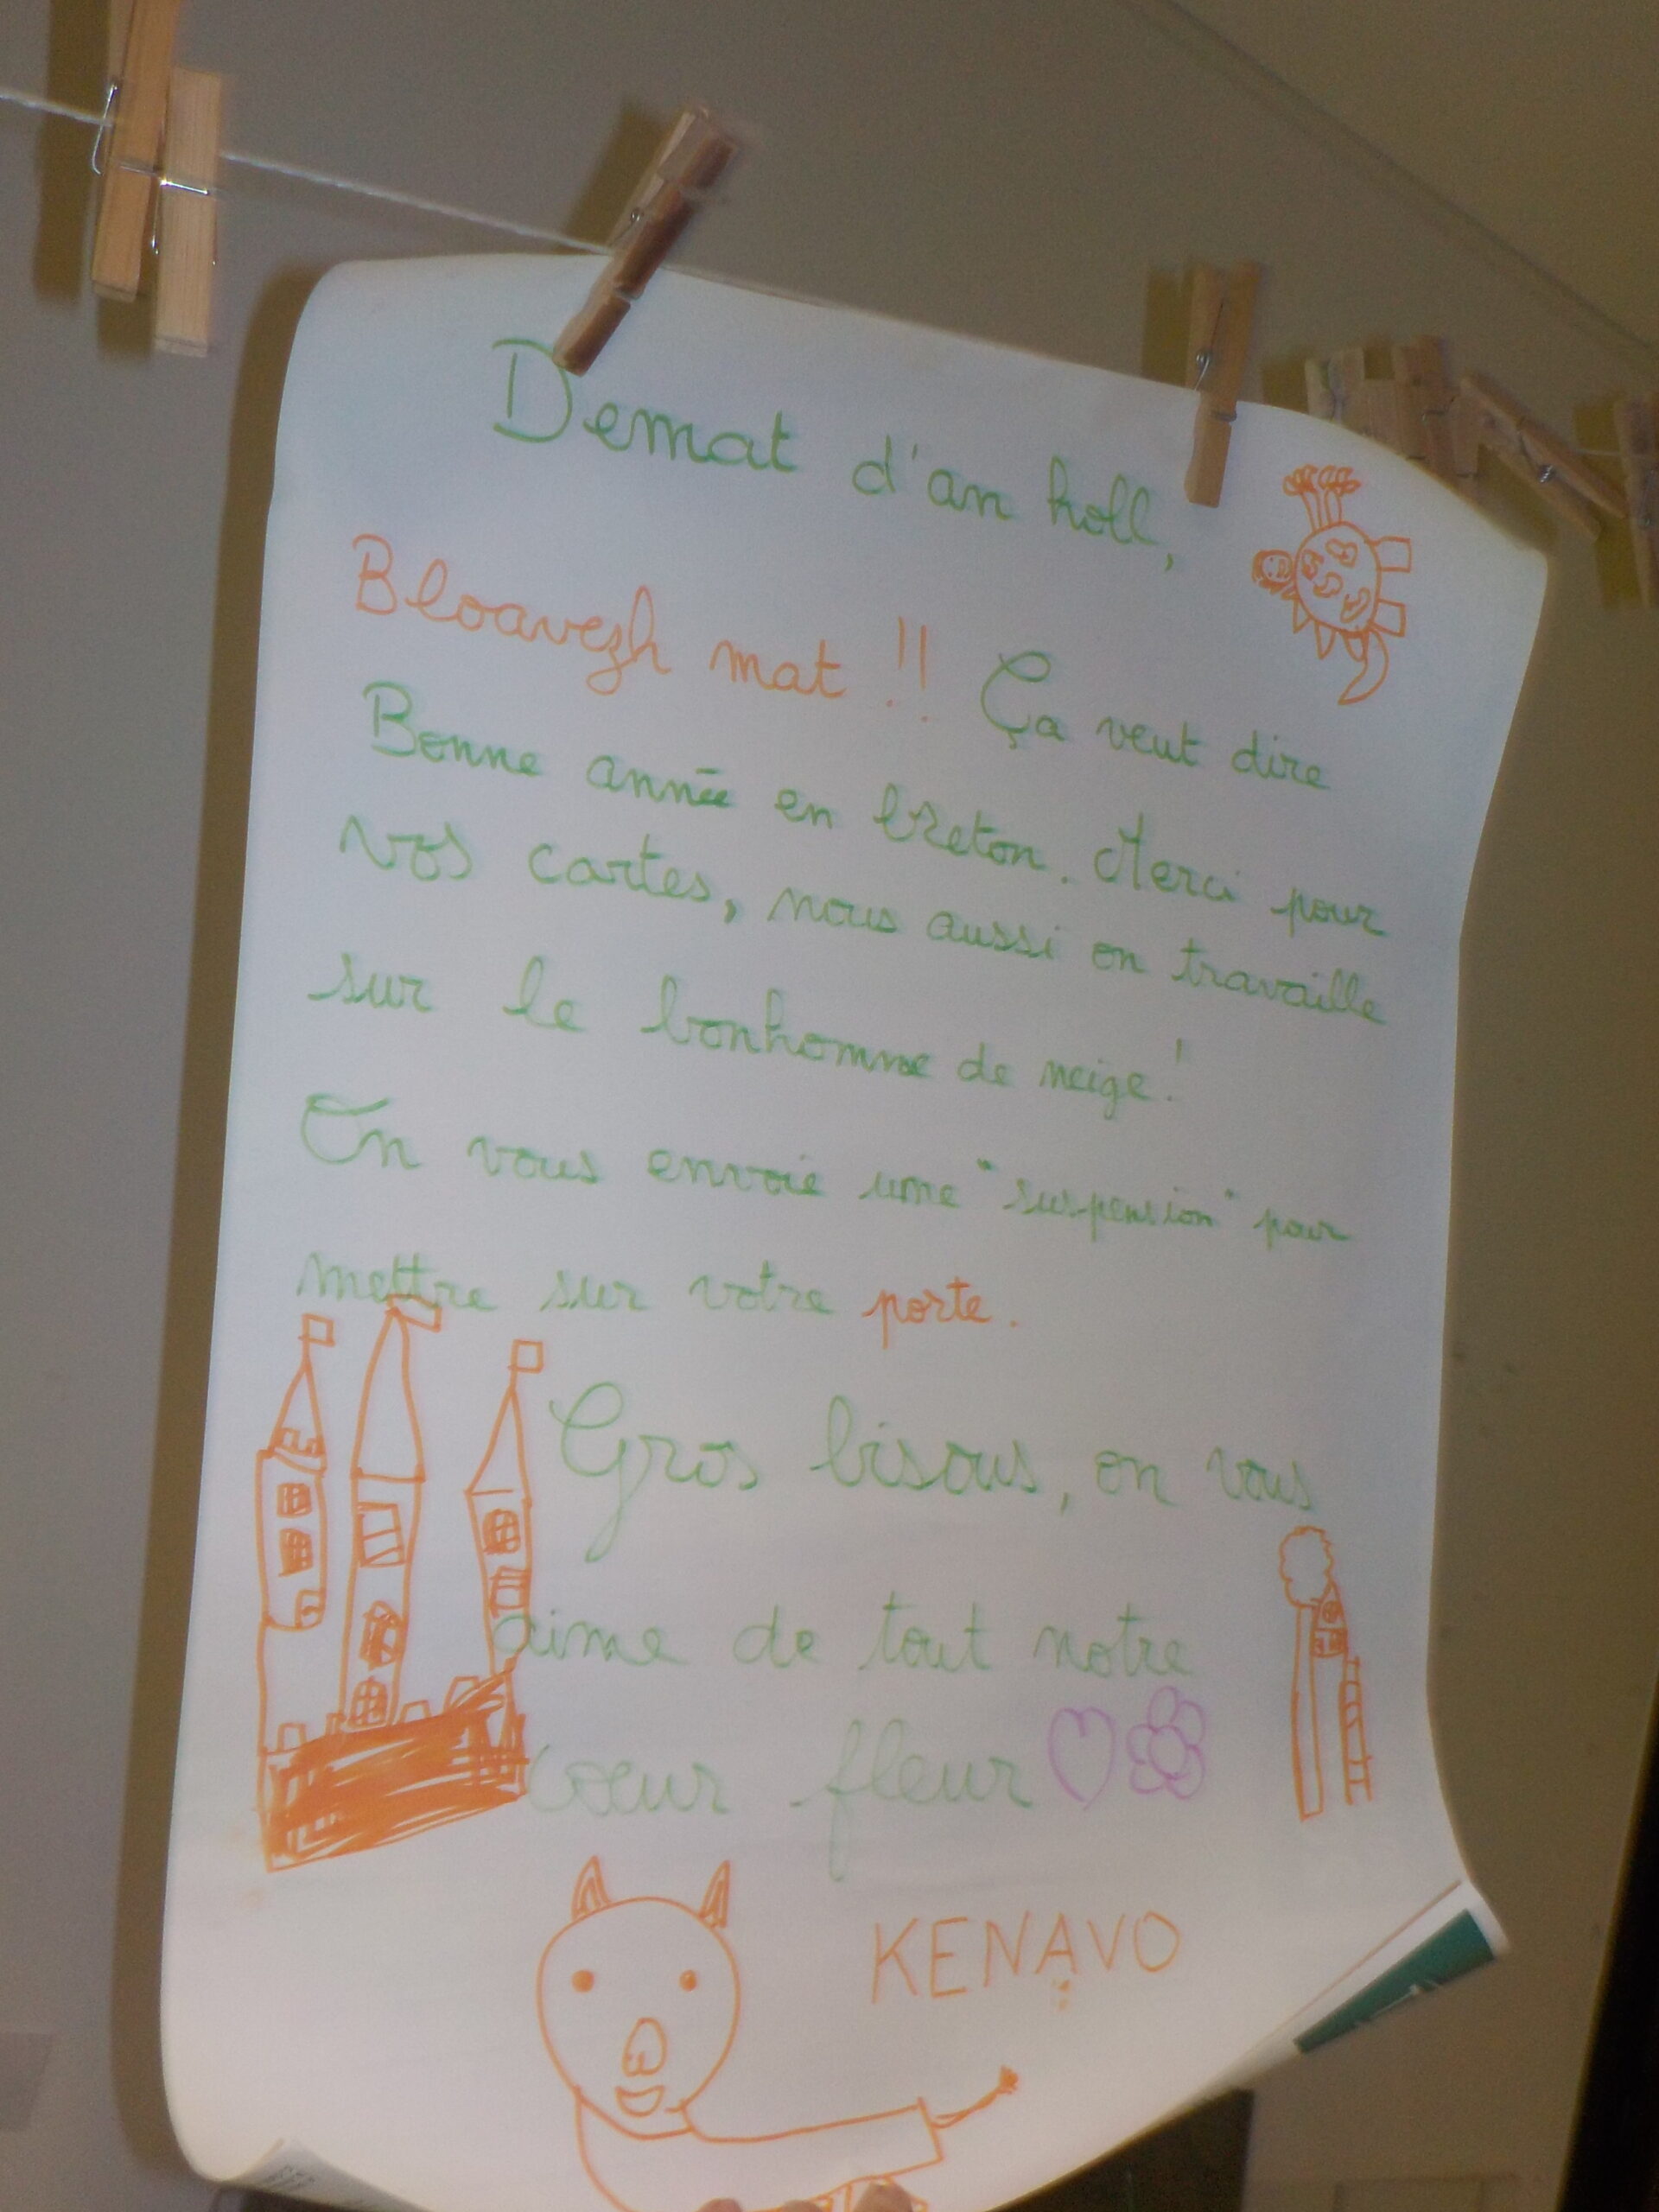 Demat d'an holl,
Bloavezh mat !! Ça veut dire
Bonne année en breton. Merci pour
vos cartes, nous aussi on travaille
sur le bonhomme de neige !
On vous envoie une "suspension" pour
mettre sur votre porte.
Gros bisous, on vous
aime de tout notre
coeur fleur
KENAVO